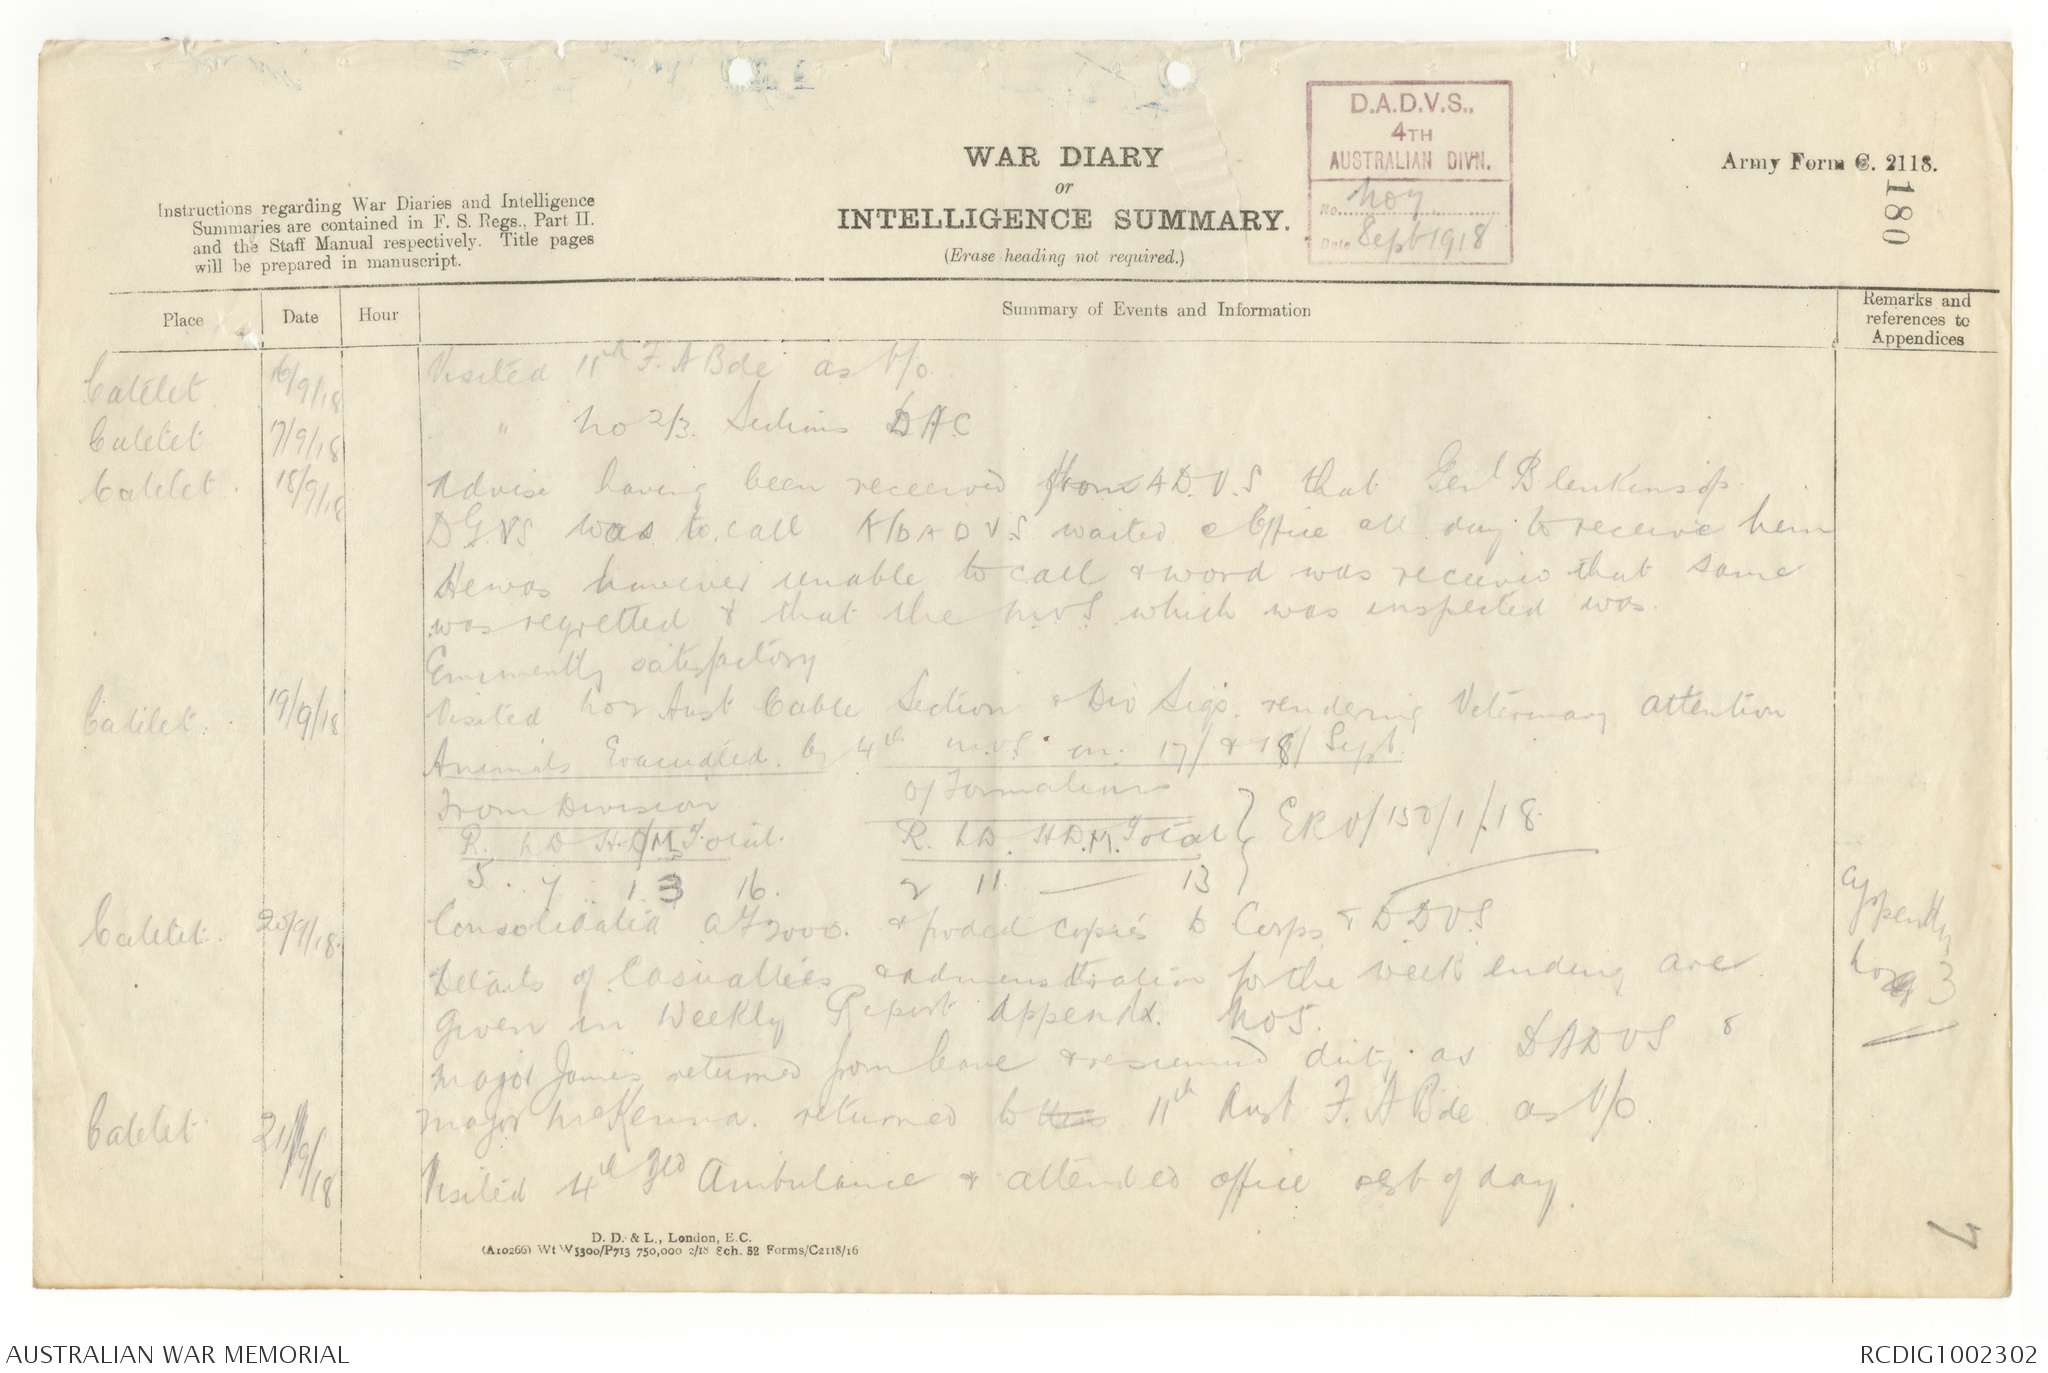 D.A.D.V.S.,
4TH
AUSTRALIAN DIVN.
No. No 7
Date Sept 1918
WAR DIARY
or
INTELLIGENCE SUMMARY.
(Erase heading not required.)
Army Form C. 2118.
180
Instructions regarding War Diaries and Intelligence
Summaries are contained in F. S. Regs., Part II.
and the Staff Manual respectively. Title pages
will be prepared in manuscript.
Place Date Hour Summary of Events and Information Remarks and references to Appendices
Catelet 16/9/18 Visited 11th F. A Bde as V/O.
Catelet 17/9/18 " No 2/3. Sections DAC
Catelet. 18/9/18 Advise having been received from A D.V.S that Genl Blenkinsop
DG.VS was to call A/DADVS waited @ Office all day to receive him
He was however unable to call & word was received that same
was regretted & that the MVS which was inspected was
Eminently satisfactory
Catelet. 19/9/18 Visited No 2 Aust Cable Section & Div Sigs. rendering Veterinary attention
Animals Evacuated by 4th M.V.S. on 17/ & 18/ Sept.
From Division Of Formations
R. LD H.D M Total. R. LD. HD. M. Total } ERV/150/1/18.
5. 7 1 3 16. 2 11 — 13 }
Catelet. 20/9/18. Consolidated AF 2000. & posted copies to Corps & DDVS
Details of Casualties & administration for the week ending are
given in Weekly Report Appendix. No 5.
Appendix
No 3
Major James returned from leave & resumed duty as DADVS &
Catelet 21/9/18 Major McKenna. returned to 11th Aust F. A Bde as V/O.
Visited 4th Fld Ambulance & attended office rest of day.
D. D. & L., London, E.C.
(A10266) Wt W5300/P713 750,000 2/18 Sch. 52 Forms/C2118/16
7
AUSTRALIAN WAR MEMORIAL
RCDIG1002302